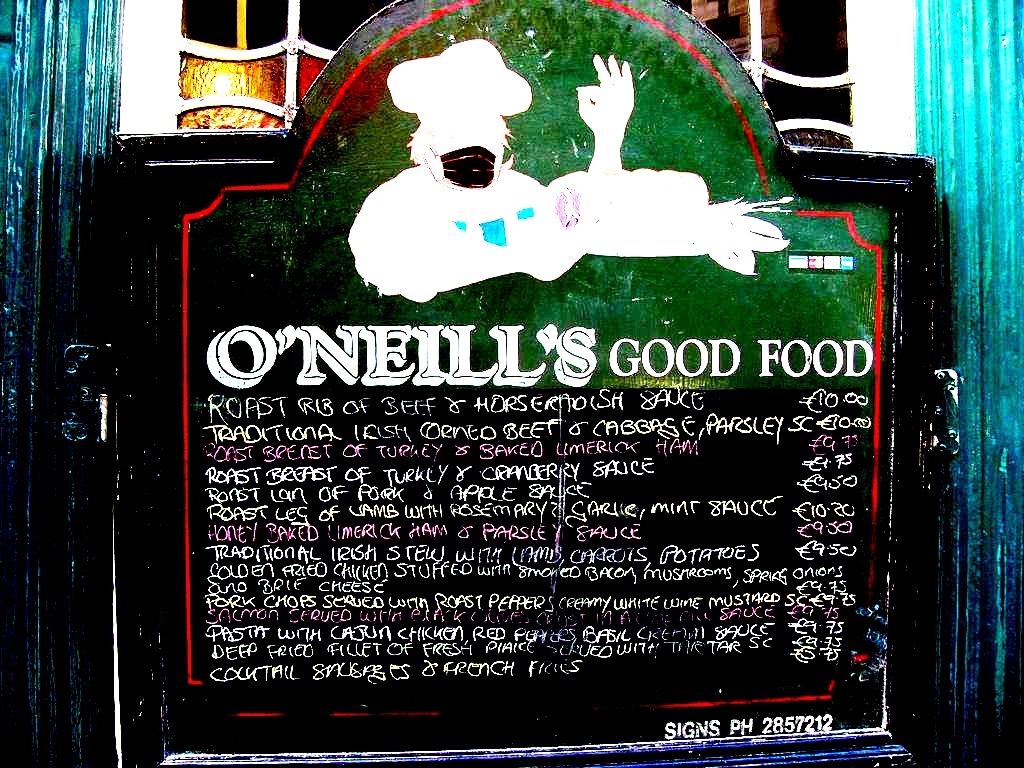 O'NEILL'S GOOD FOOD
ROAST RIB OF BEEF & HORSERADISH SAUCE €10.00
TRADITIONAL IRISH CORNED BEEF & CABBAGE, PARSLEY SC €10.00
ROAST BREAST OF TURKEY & BAKED LIMERICK HAM €9.75
ROAST BREAST OF TURKEY & CRANBERRY SAUCE €9.75
ROAST LOIN OF PORK & APPLE SAUCE €9.50
ROAST LEG OF LAMB WITH ROSEMARY & GARLIC, MINT SAUCE €10.20
HONEY BAKED LIMERICK HAM & PARSLEY SAUCE €9.50
TRADITIONAL IRISH STEW WITH LAMB, CARROTS, POTATOES €9.50
GOLDEN FRIED CHICKEN STUFFED WITH SMOKED BACON, MUSHROOMS, SPRING ONIONS
AND BRIE CHEESE €9.75
PORK CHOPS SERVED WITH ROAST PEPPERS CREAMY WHITE WINE MUSTARD SC €9.75
SALMON SERVED WITH CRUST IN SAUCE €9.75
PASTA WITH CAJUN CHICKEN, RED PEPPERS, BASIL CREAM SAUCE €9.75
DEEP FRIED FILLET OF FRESH PLAICE SERVED WITH TARTAR SC €9.75
COCKTAIL SAUSAGES & FRENCH FRIES €8.75
SIGNS PH 2857212